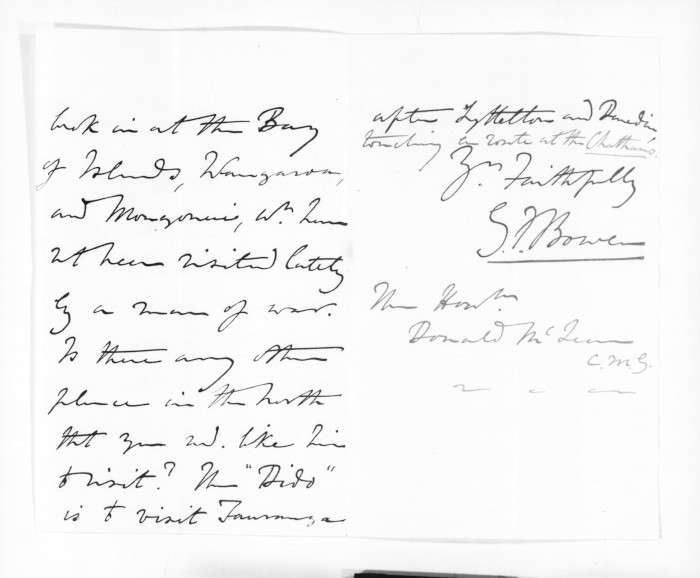 look in at the Bay
of Islands, Wangaroa,
and Mongonui, wh. have
not been visited lately
by a man of war.
Is there any other
place in the North
that you wd. like him
to visit? The "Dido"
is to visit Tauranga
after Lyttelton and Dunedin,
touching en route at the Chathams.
Yrs. Faithfully
G.F. Bowen
The Honble
Donald McLean
C.M.G.